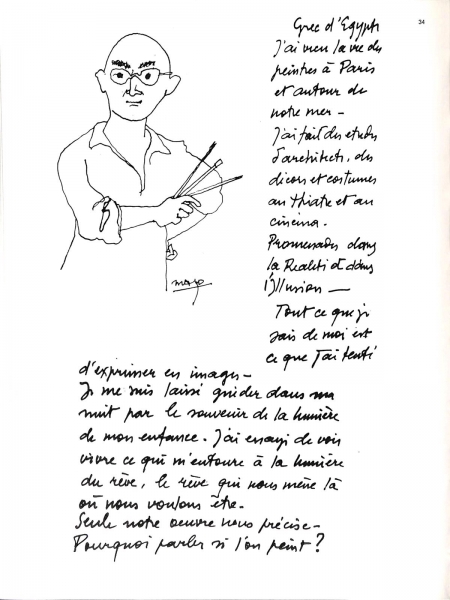 34
Grec d'Egypte
J'ai vécu la vie des
peintres à Paris
et autour de
notre mer —
J'ai fait des études
d'architecte, des
décors et costumes
au théatre et au
cinéma.
Promenades dans
la Réalité et dans
l'Illusion —
Tout ce que je
sais de moi est
ce que J'ai tenté
mayo
d'exprimer en images —
Je me suis laissé guider dans ma
nuit par le souvenir de la lumière
de mon enfance. J'ai essayé de voir
vivre ce qui m'entoure à la lumière
du rêve, le rêve qui nous mène là
où nous voulons être —
Seule notre oeuvre nous précise —
Pourquoi parler si l'on peint ?